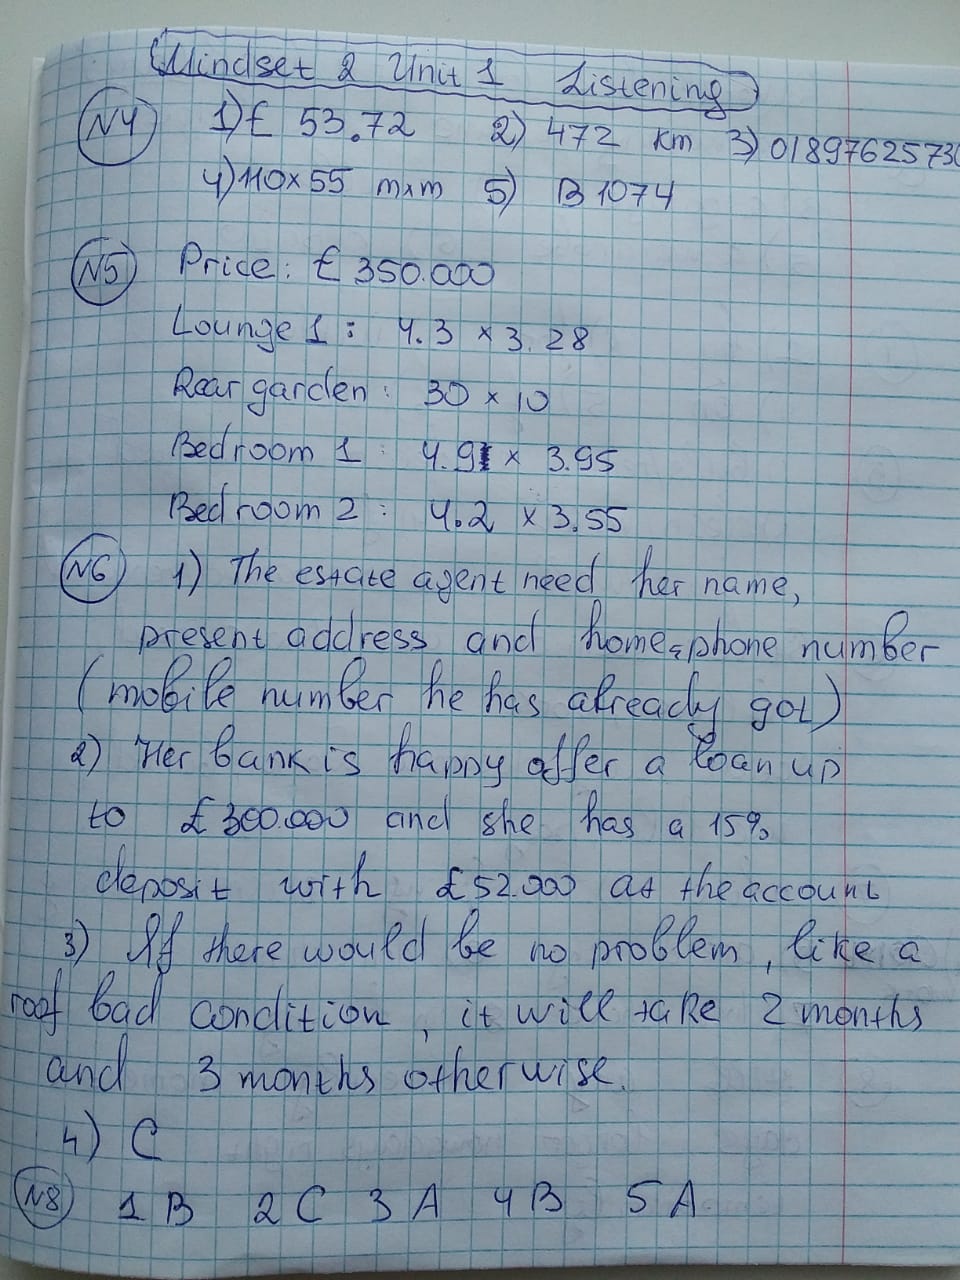 Mindset 2 Unit 1 Listening
N4 1) £ 53.72 2) 472 km 3) 01897625730
4) 110 x 55 mxm 5) B 1074
N5 Price: £ 350.000
Lounge 1: 4.3 x 3.28
Rear garden: 30 x 10
Bedroom 1: 4.9 x 3.95
Bedroom 2: 4.2 x 3.55
N6 1) The estate agent need her name,
present address and home-phone number
(mobile number he has already got)
2) Her bank is happy offer a loan up
to £300.000 and she has a 15%
deposit with £52.000 at the account
3) If there would be no problem, like a
roof bad condition, it will take 2 months
and 3 months otherwise.
4) C
N8 1 B 2 C 3 A 4 B 5 A